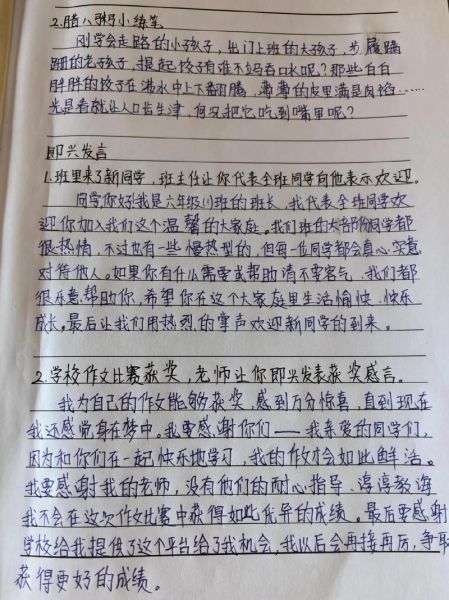 2.腊八粥小练笔
刚学会走路的小孩子,出门上班的大孩子,步履蹒
跚的老孩子,提起饺子有谁不妈吞口水呢?那些白白
胖胖的饺子在沸水中上下翻腾,薄薄的皮里满是肉馅……
光是看就让人口齿生津,何况把它吃到嘴里呢?
即兴发言
1.班里来了新同学,班主任让你代表全班同学向他表示欢迎。
同学你好!我是六年级(1)班的班长,我代表全班同学欢
迎你加入我们这个温馨的大家庭。我们班的大部份同学都
很热情,不过也有一些慢热型的,但每一位同学都会真心实意
对待他人。如果你有什么需要或帮助请不要客气,我们都
很乐意帮助你,希望你在这个大家庭里生活愉快、快乐
成长。最后让我们用热烈的掌声欢迎新同学的到来。
2.学校作文比赛获奖,老师让你即兴发表获奖感言。
我为自己的作文能够获奖,感到万分惊喜,直到现在
我还感觉身在梦中。我要感谢你们——我亲爱的同学们,
因为和你们在一起快乐地学习,我的作文才会如此鲜活。
我要感谢我的老师,没有他们的耐心指导、谆谆教诲
我不会在这次作文比赛中获得如此优异的成绩。最后要感谢
学校给我提供了这个平台给了我机会,我以后会再接再厉,争取
获得更好的成绩。